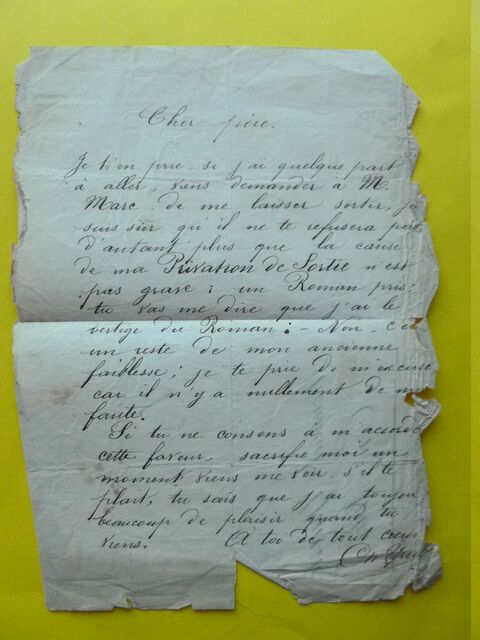 Cher père.
Je t'en prie si j'ai quelque part
à aller, viens demander à M.
Marc de me laisser sortir, je
suis sûr qu'il ne te refusera pas
d'autant plus que la cause
de ma Privation de Sortie n'est
pas grave ; un Roman pris
tu vas me dire que j'ai le
vertige du Roman ; - Non. C'est
un reste de mon ancienne
faiblesse ; je te prie de m'excuse
car il n'y a nullement de ma
faute.
Si tu ne consens à m'accorde
cette faveur sacrifie moi un
moment viens me voir s'il te
plait, tu sais que j'ai toujou
beaucoup de plaisir quand tu
viens. A toi de tout cœur
Ch